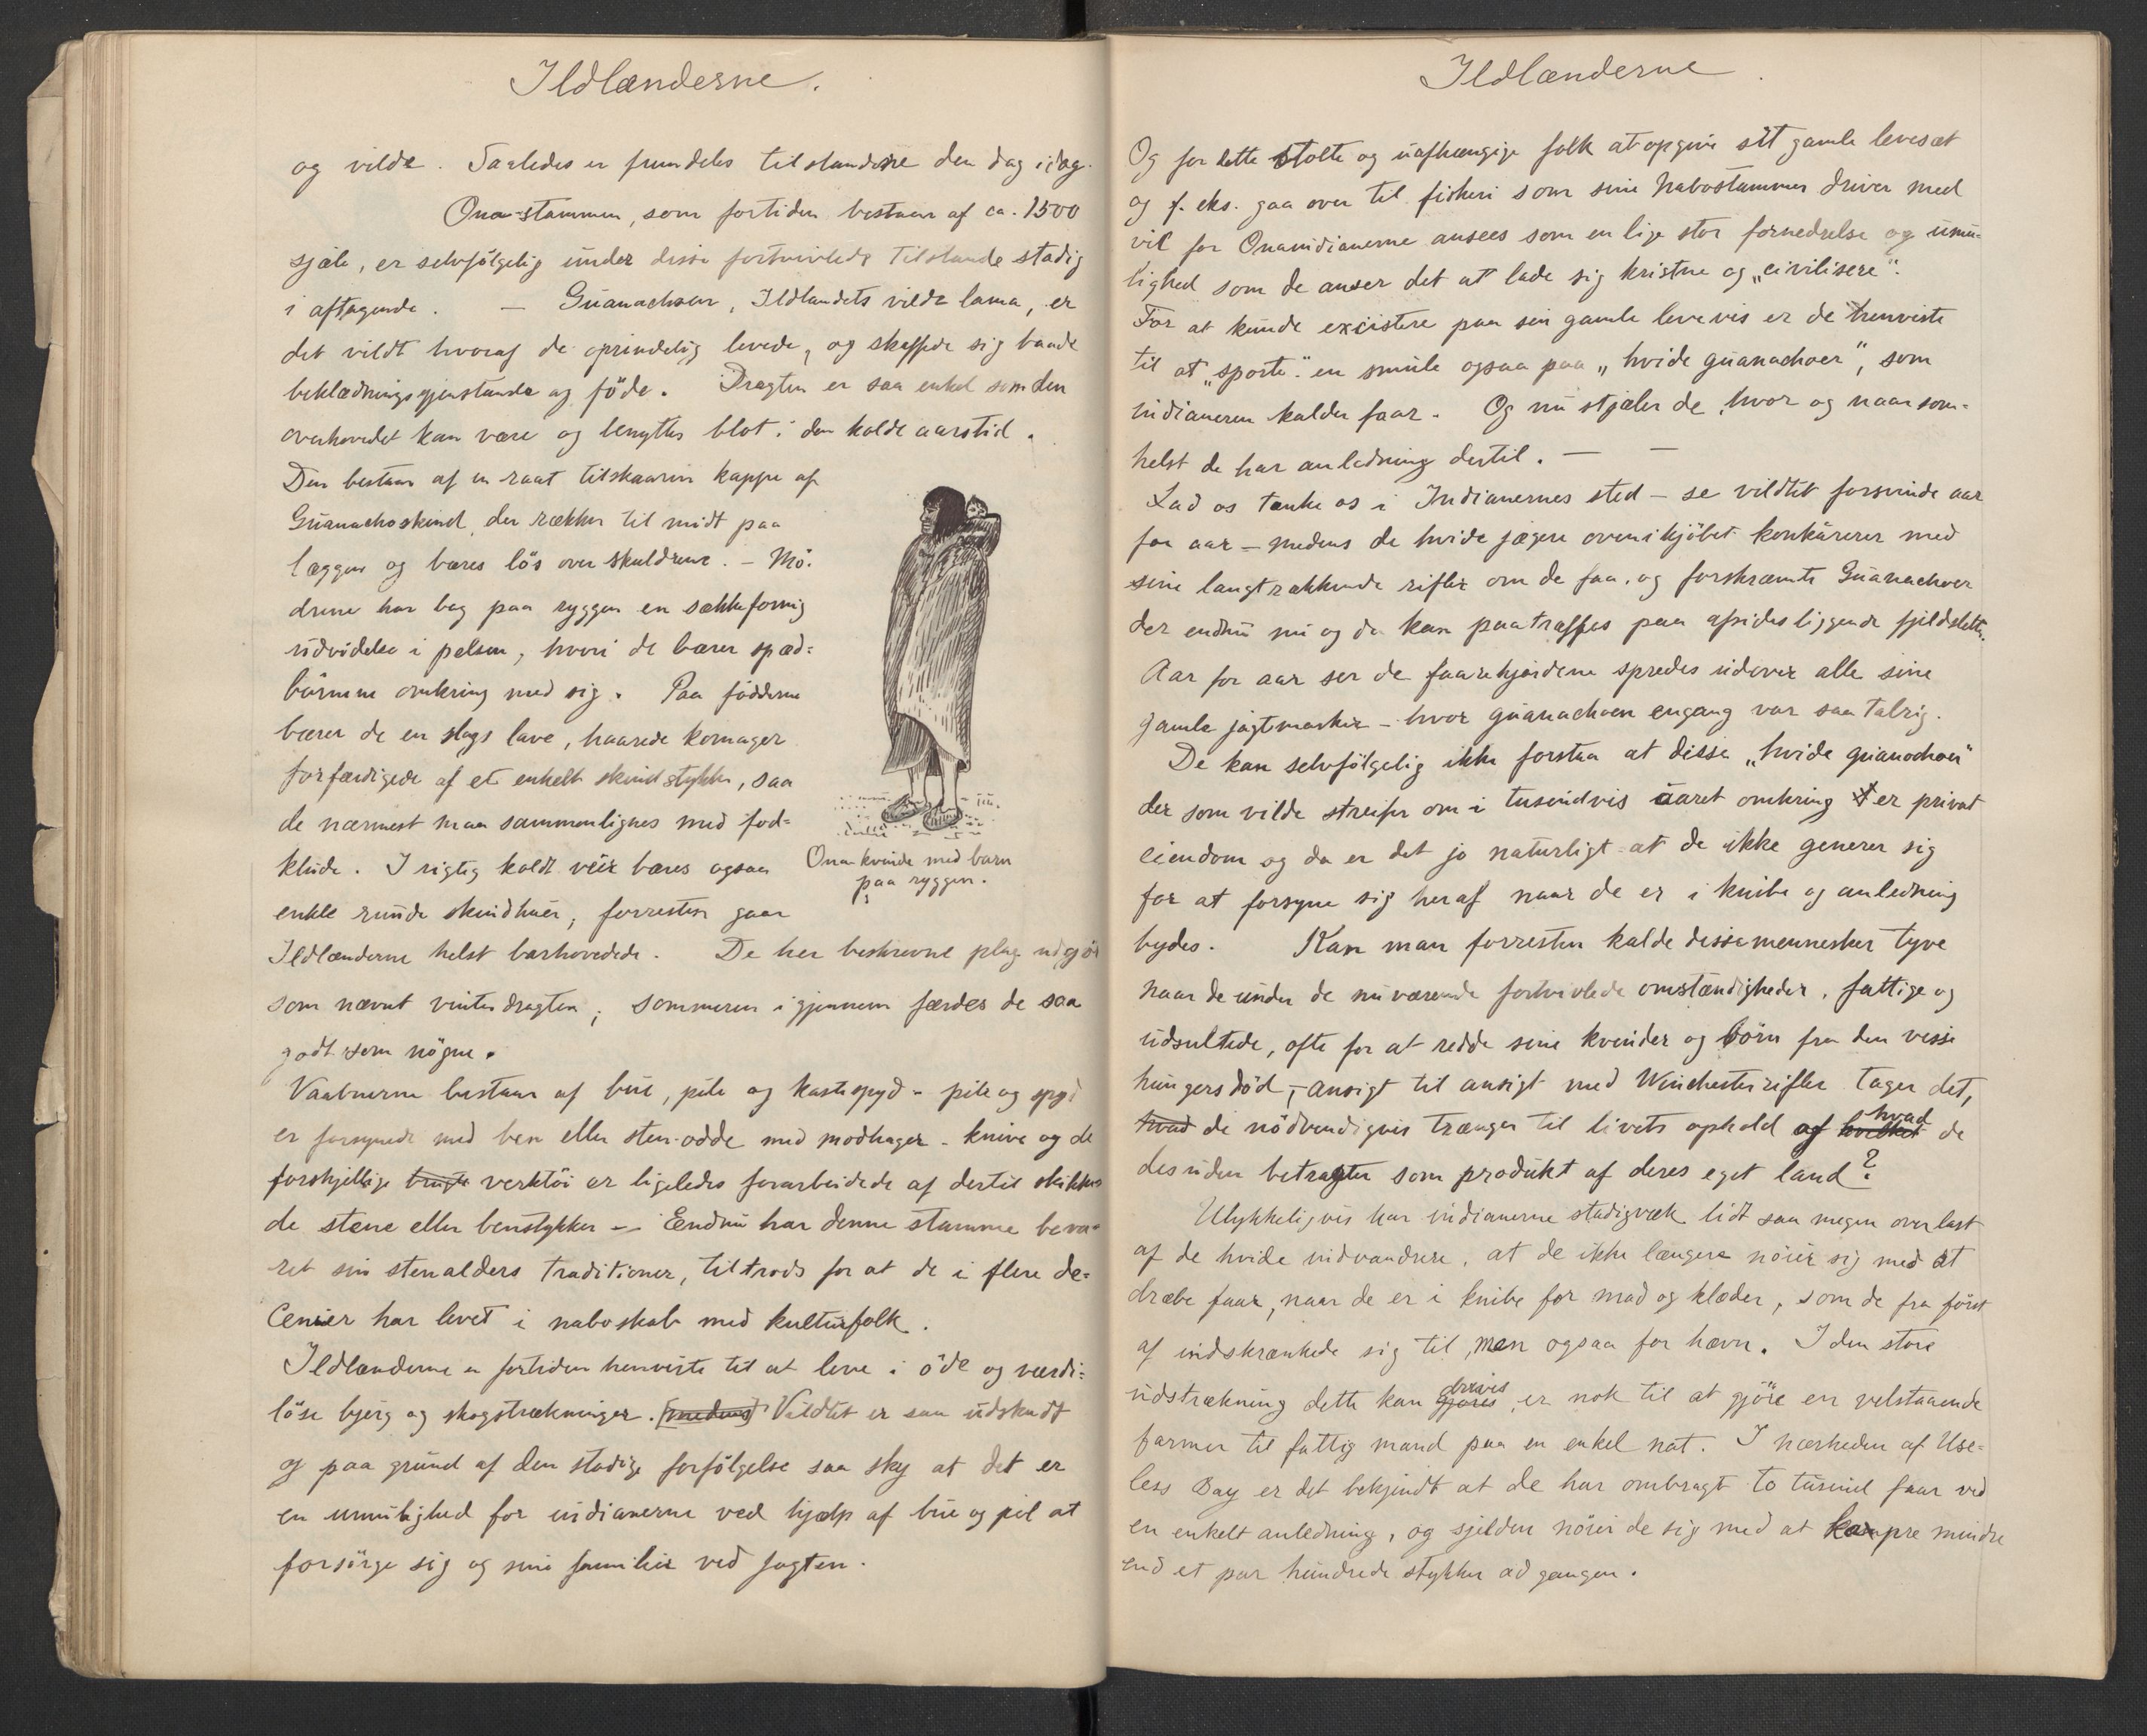 Ildlænderne.
og vilde. Saaledes er fremdeles tilstandene den dag idag.
Ona-stammen, som fortiden bestaar af ca. 1500
sjæle, er selvfölgelig under disse fortvivlede tilstande stadig
i aftagende. — Guanachoen, Ildlandets vilde lama, er
det vildt hvoraf de oprindelig levede, og skaffede sig baade
beklædningsgjenstande og föde. Dragten er saa enkel som den
overhovedet kan være og benyttes blot i den kolde aarstid.
Den bestaar af en raat tilskaaren kappe af
Guanachoskind, der rækker til midt paa
læggen og bæres lös over skuldrene. – Mö:
drene har bag paa ryggen en sækkeformig
udvidelse i pelsen, hvori de bærer spæd:
börnene omkring med sig. Paa födderne
bærer de en slags lave, haarede komager
forfærdigede af et enkelt skindstykke, saa
de nærmest maa sammenlignes med fod=
klude. I rigtig koldt veir bæres ogsaa
enkle runde skindhuer, forresten gaar
Ildlænderne helst barhovedede. De her beskrevne plag udgjör
som nævnt vinterdragten; sommeren igjennem færdes de saa
godt som nögne.
Ona-kvinde med barn
paa ryggen.
Vaabnerne bestaar af bue, pile og kastespyd – pile og spyd
er forsynede med ben eller sten-odde med modhager – knive og de
forskjellige brugte verktöi er ligeledes forarbeidede af dertil skikke-
de stene eller benstykker — Endnu har denne stamme beva=
ret sin stenalders traditioner, tiltrods for at de i flere de=
cenier har levet i naboskab med kulturfolk.
Ildlænderne er fortiden henviste til at leve i öde og værdi=
löse bjerg og skogstrækninger. [medens] Vildtet er saa udskudt
og paa grund af den stadige forfölgelse saa sky at det er
en umulighed for indianerne ved hjælp af bue og pil at
forsörge sig og sine familier ved jagten.
Ildlænderne.
Og for dette stolte og uafhængige folk at opgive sit gamle levesæt
og f. eks. gaa over til fiskeri som sine nabostammer driver med
vil for Onaindianerne ansees som en lige stor fornedrelse og umu-
lighed som de anser det at lade sig kristne og „civilisere".
For at kunde excistere paa sin gamle levevis er de henviste
til at „sporte" en smule ogsaa paa „hvide guanachoer", som
indianeren kalder faar. Og nu stjæler de hvor og naar som=
helst de har anledning dertil. — —
Lad os tænke os i Indianernes sted – se vildtet forsvinde aar
for aar – medens de hvide jægere ovenikjöbet konkurerer med
sine langtrækkende rifler om de faa, og forskræmte Guanachoer
der endnu nu og da kan paatræffes paa afsides liggende fjeldsletter.
Aar for aar ser de faarehjordene spredes udover alle sine
gamle jagtmarker – hvor guanachoen engang var saa talrig.
De kan selvfölgelig ikke forstaa at disse „hvide guanachoer"
der som vilde streifer om i tusindvis aaret omkring er privat
eiendom og da er det jo naturligt at de ikke generer sig
for at forsyne sig heraf naar de er i knibe og anledning
bydes. Kan man forresten kalde disse mennesker tyve
naar de under de nuværende fortvivlede omstændigheder, fattige og
udsultede, ofte for at redde sine kvinder og börn fra den visse
hungersdöd, – ansigt til ansigt med Winchesterrifler tager det,
hvad de nödvendigvis trænger til livets ophold af hvilket hvad de
desuden betragter som produkt af deres eget land?
Ulykkeligvis har indianerne stadigvæk lidt saa megen overlast
af de hvide indvandrere, at de ikke længere nöier sig med at
dræbe faar, naar de er i knibe for mad og klæder, som de fra först
af indskrænkede sig til, men ogsaa for hævn. I den store
udstrækning dette kan gjöres drives, er nok til at gjöre en velstaaende
farmer til fattig mand paa en enkel nat. I nærheden af Use=
less Bay er det bekjendt at de har ombragt to tusind faar ved
en enkelt anledning, og sjelden nöier de sig med at kapre mindre
end et par hundrede stykker ad gangen.